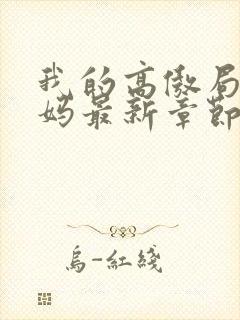 我的高傲局
妈最新章節
烏-紅綫